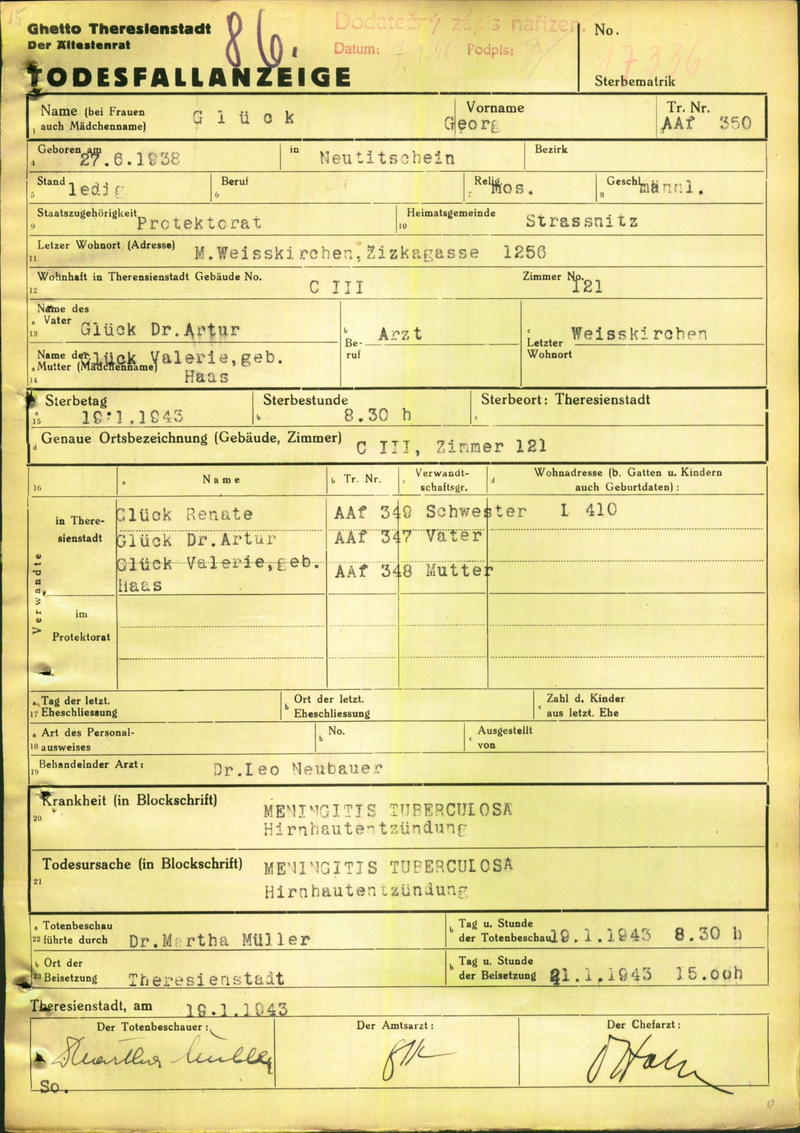 Ghetto Theresienstadt
Der Ältestenrat
86.
Dodatečný zápis nařízen.
Datum: Podpis:
No.
17336
Sterbematrik
TODESFALLANZEIGE
Name (bei Frauen auch Mädchenname) Glück Vorname Georg Tr. Nr. AAf 350
1
4 Geboren am 27.6.1938 in Neutitschein Bezirk
5 Stand ledig 6 Beruf 7 Relig. Mos. 8 Geschl. männl.
9 Staatszugehörigkeit Protektorat 10 Heimatsgemeinde Strassnitz
11 Letzer Wohnort (Adresse) M.Weisskirchen, Zizkagasse 1256
12 Wohnhaft in Therensienstadt Gebäude No. C III Zimmer No. 121
13 a Name des Vater Glück Dr.Artur b Beruf Arzt c Letzter Wohnort Weisskirchen
14 a Name der Mutter (Mädchenname) Glück Valerie, geb. Haas
15 a Sterbetag 19.1.1943 b Sterbestunde 8.30 h c Sterbeort: Theresienstadt
d Genaue Ortsbezeichnung (Gebäude, Zimmer) C III, Zimmer 121
16 a Name b Tr. Nr. c Verwandtschaftsgr. d Wohnadresse (b. Gatten u. Kindern auch Geburtdaten):
Verwandte
in Theresienstadt
Glück Renate AAf 349 Schwester I 410
Glück Dr.Artur AAf 347 Vater
Glück Valerie, geb. Haas AAf 348 Mutter
im Protektorat
17 a Tag der letzt. Eheschliessung b Ort der letzt. Eheschliessung c Zahl d. Kinder aus letzt. Ehe
18 a Art des Personalausweises b No. c Ausgestellt von
19 Behandelnder Arzt: Dr.Leo Neubauer
20 Krankheit (in Blockschrift) MENINGITIS TUBERCULOSA
Hirnhautentzündung
21 Todesursache (in Blockschrift) MENINGITIS TUBERCULOSA
Hirnhautentzündung
22 a Totenbeschau führte durch Dr.Martha Müller b Tag u. Stunde der Totenbeschau 19.1.1943 8.30 h
23 b Ort der Beisetzung Theresienstadt b Tag u. Stunde der Beisetzung 21.1.1943 15.00h
Theresienstadt, am 19.1.1943
Der Totenbeschauer: Der Amtsarzt: Der Chefarzt:
Martha Müller
So.